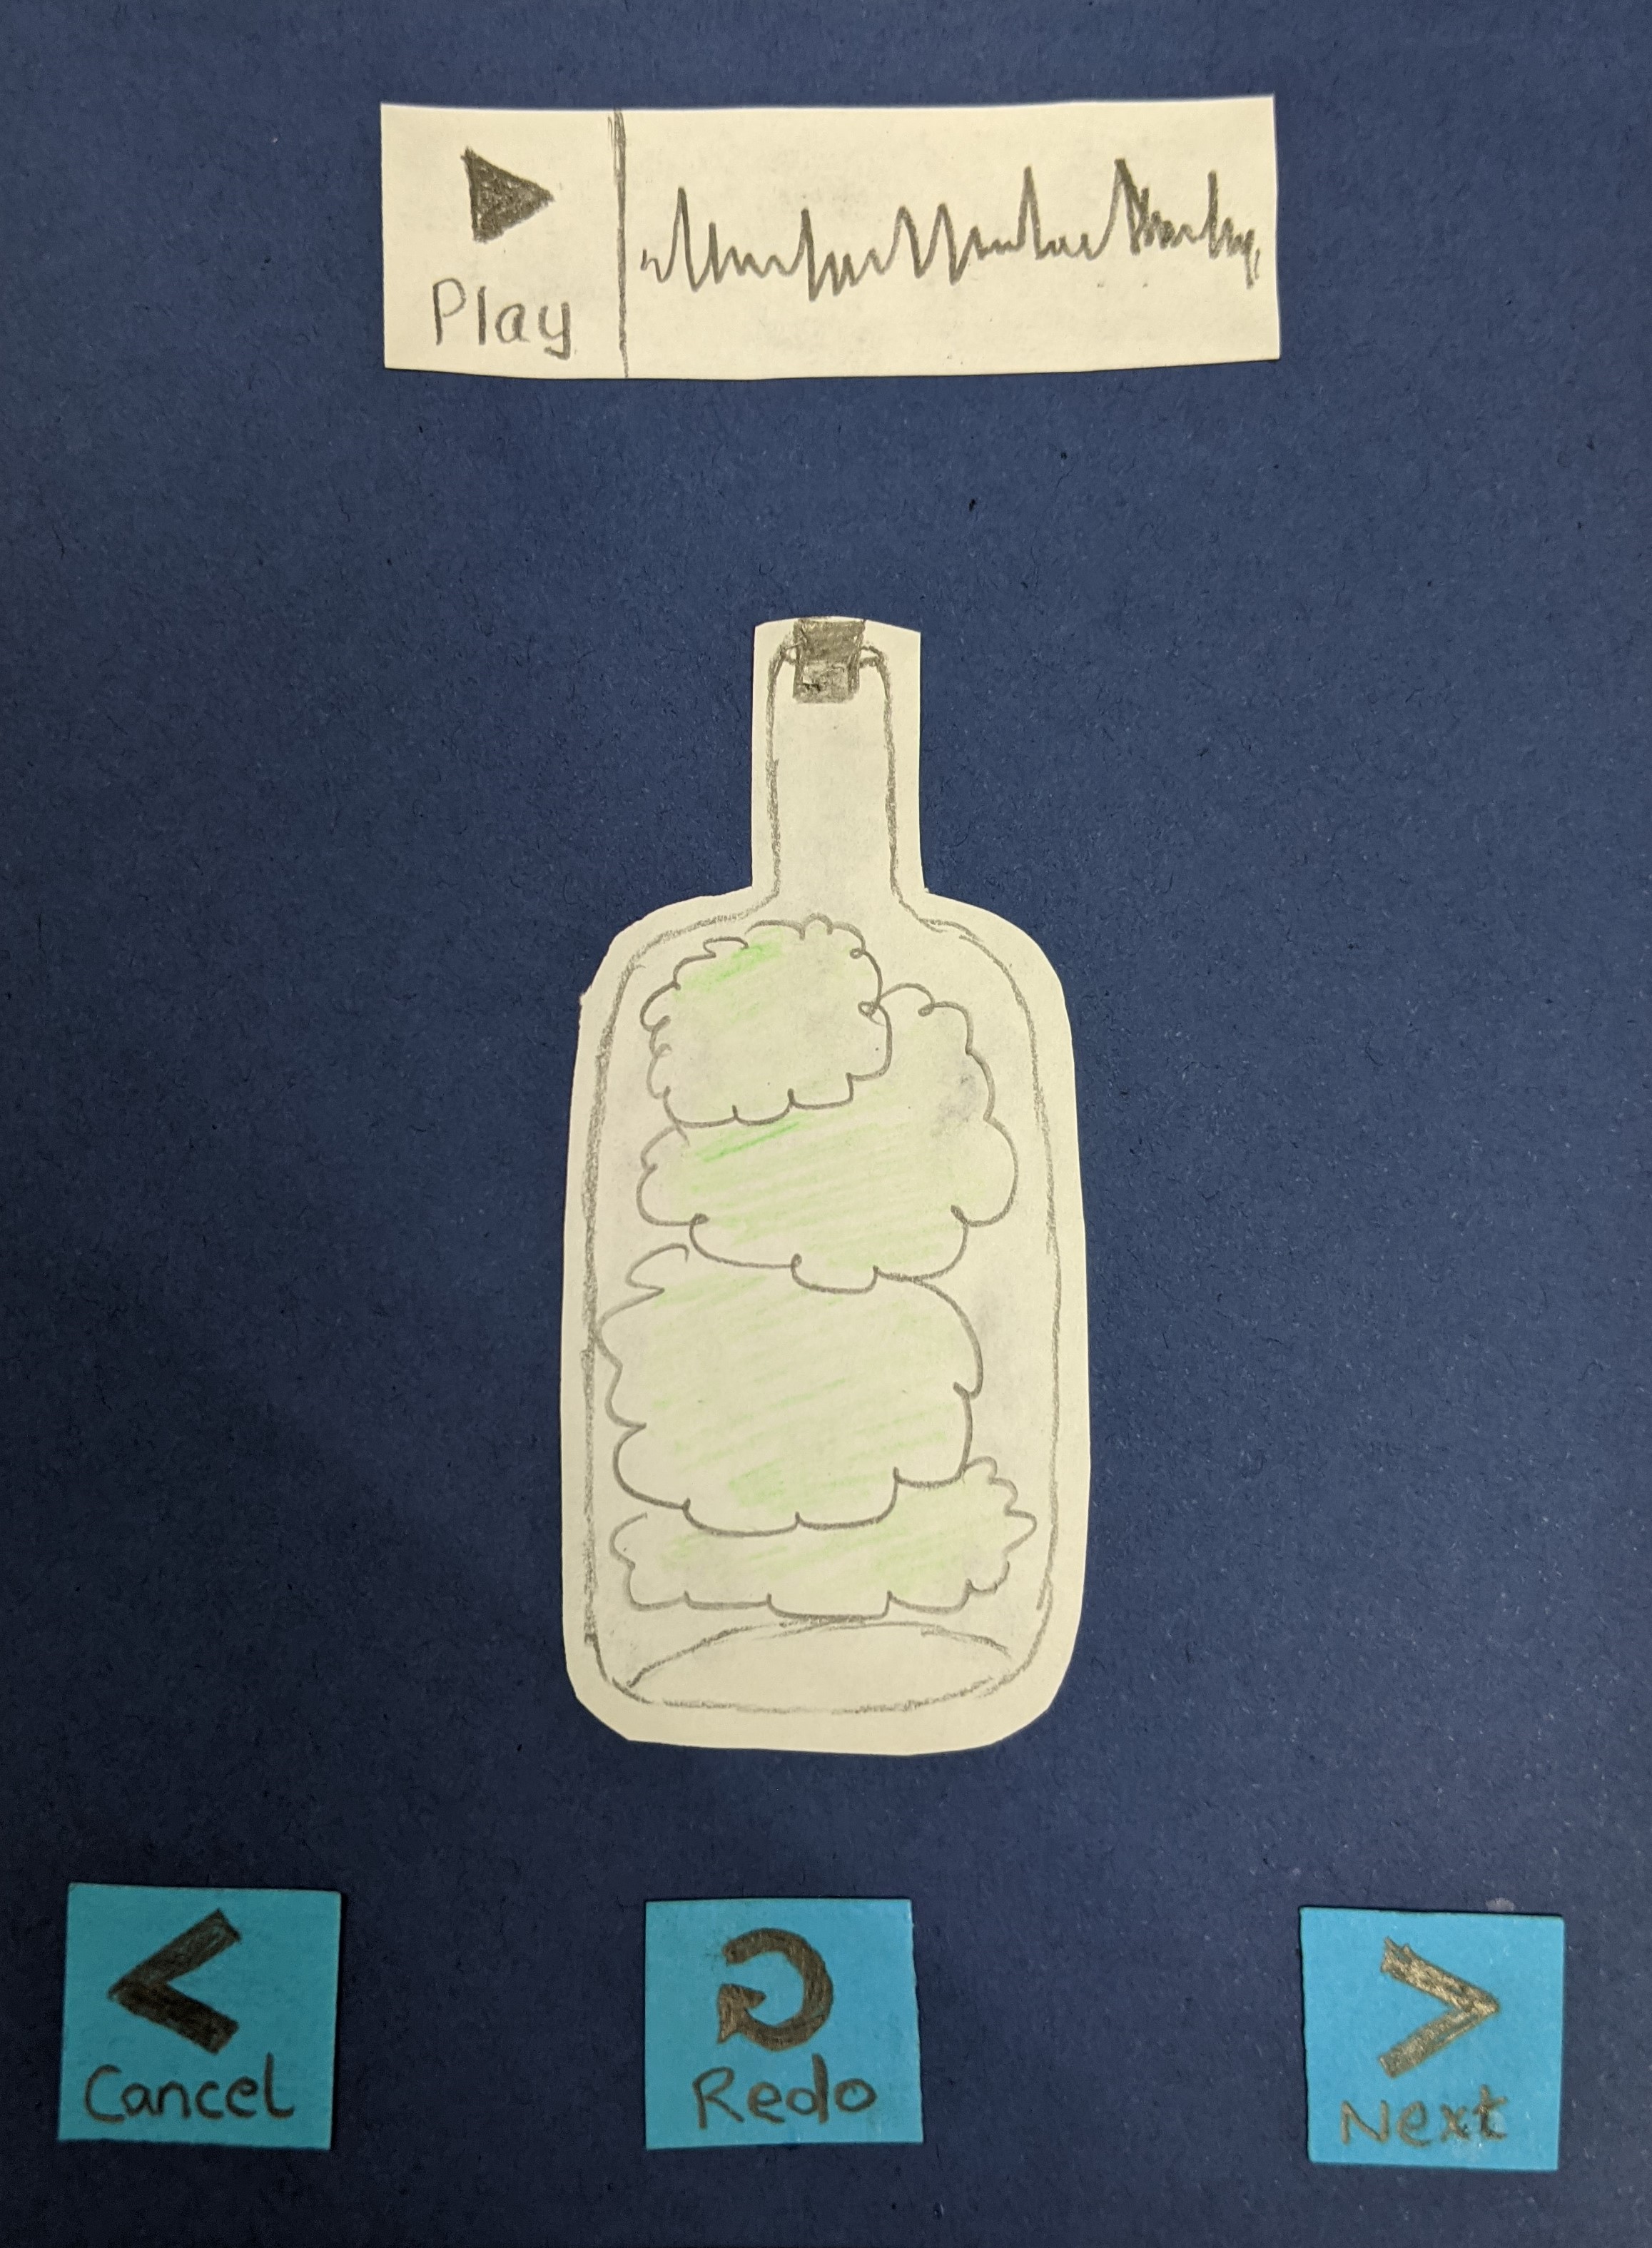 Play
Cancel
Redo
Next